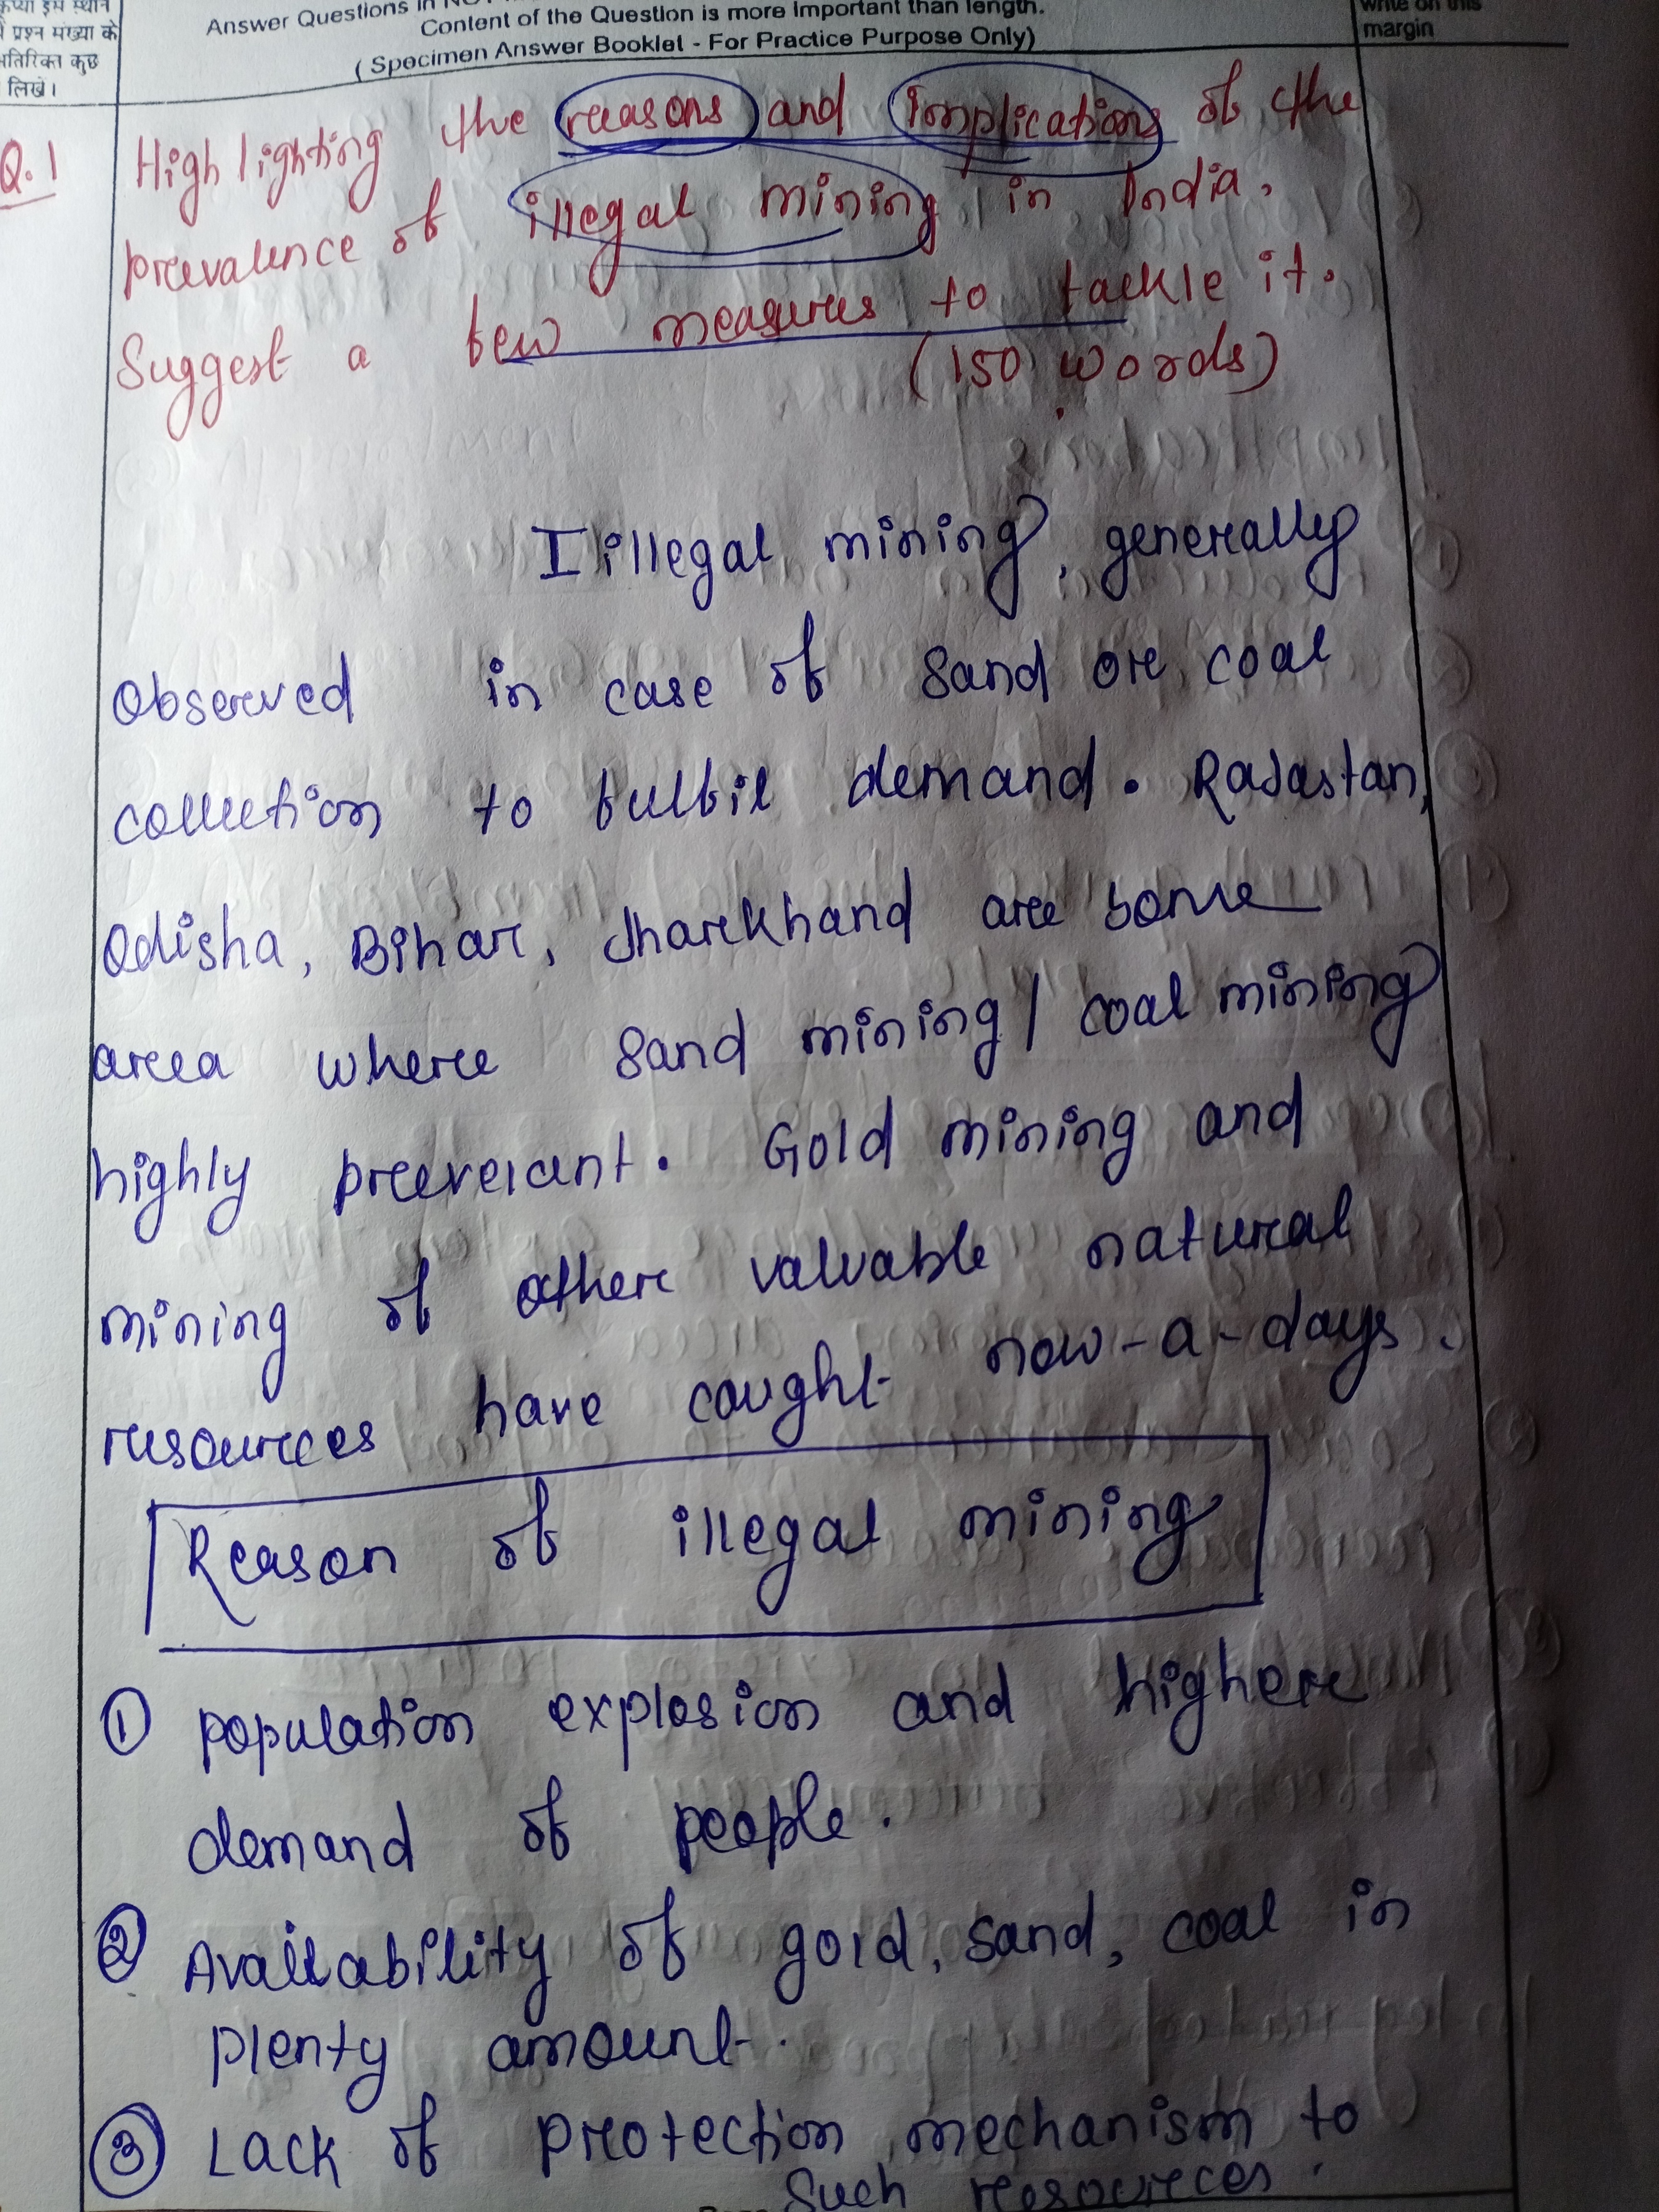 कुछ
लिखें।
प्रश्न संख्या के
Answer Questions in
Content of the Question is more important than length.
(Specimen Answer Booklet - For Practice Purpose Only)
write on this
margin
Q.1 Highlighting the reasons and implications of the
prevalence of illegal mining in India.
Suggest a few measures to tackle it.
(150 words)
Iillegal mining, generally
observed in case of sand or coal
collection to fulfil demand. Rajastan,
Odisha, Bihar, Jharkhand are some
area where sand mining / coal mining
highly prevelant. Gold mining and
mining of other valuable natural
resources have caught now-a-days.
Reason of illegal mining
① population explosion and higher
demand of people.
② Availability of gold, sand, coal in
plenty amount.
③ Lack of protection mechanism to
such resources.